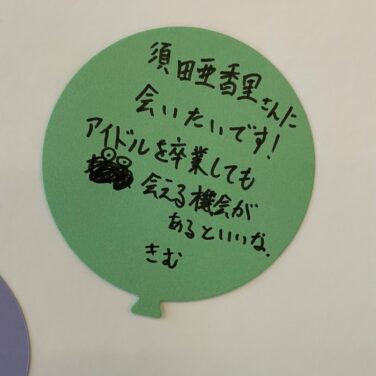 須田亜香里さんに
会いたいです!
アイドルを卒業しても
会える機会が
あるといいな.
きむ